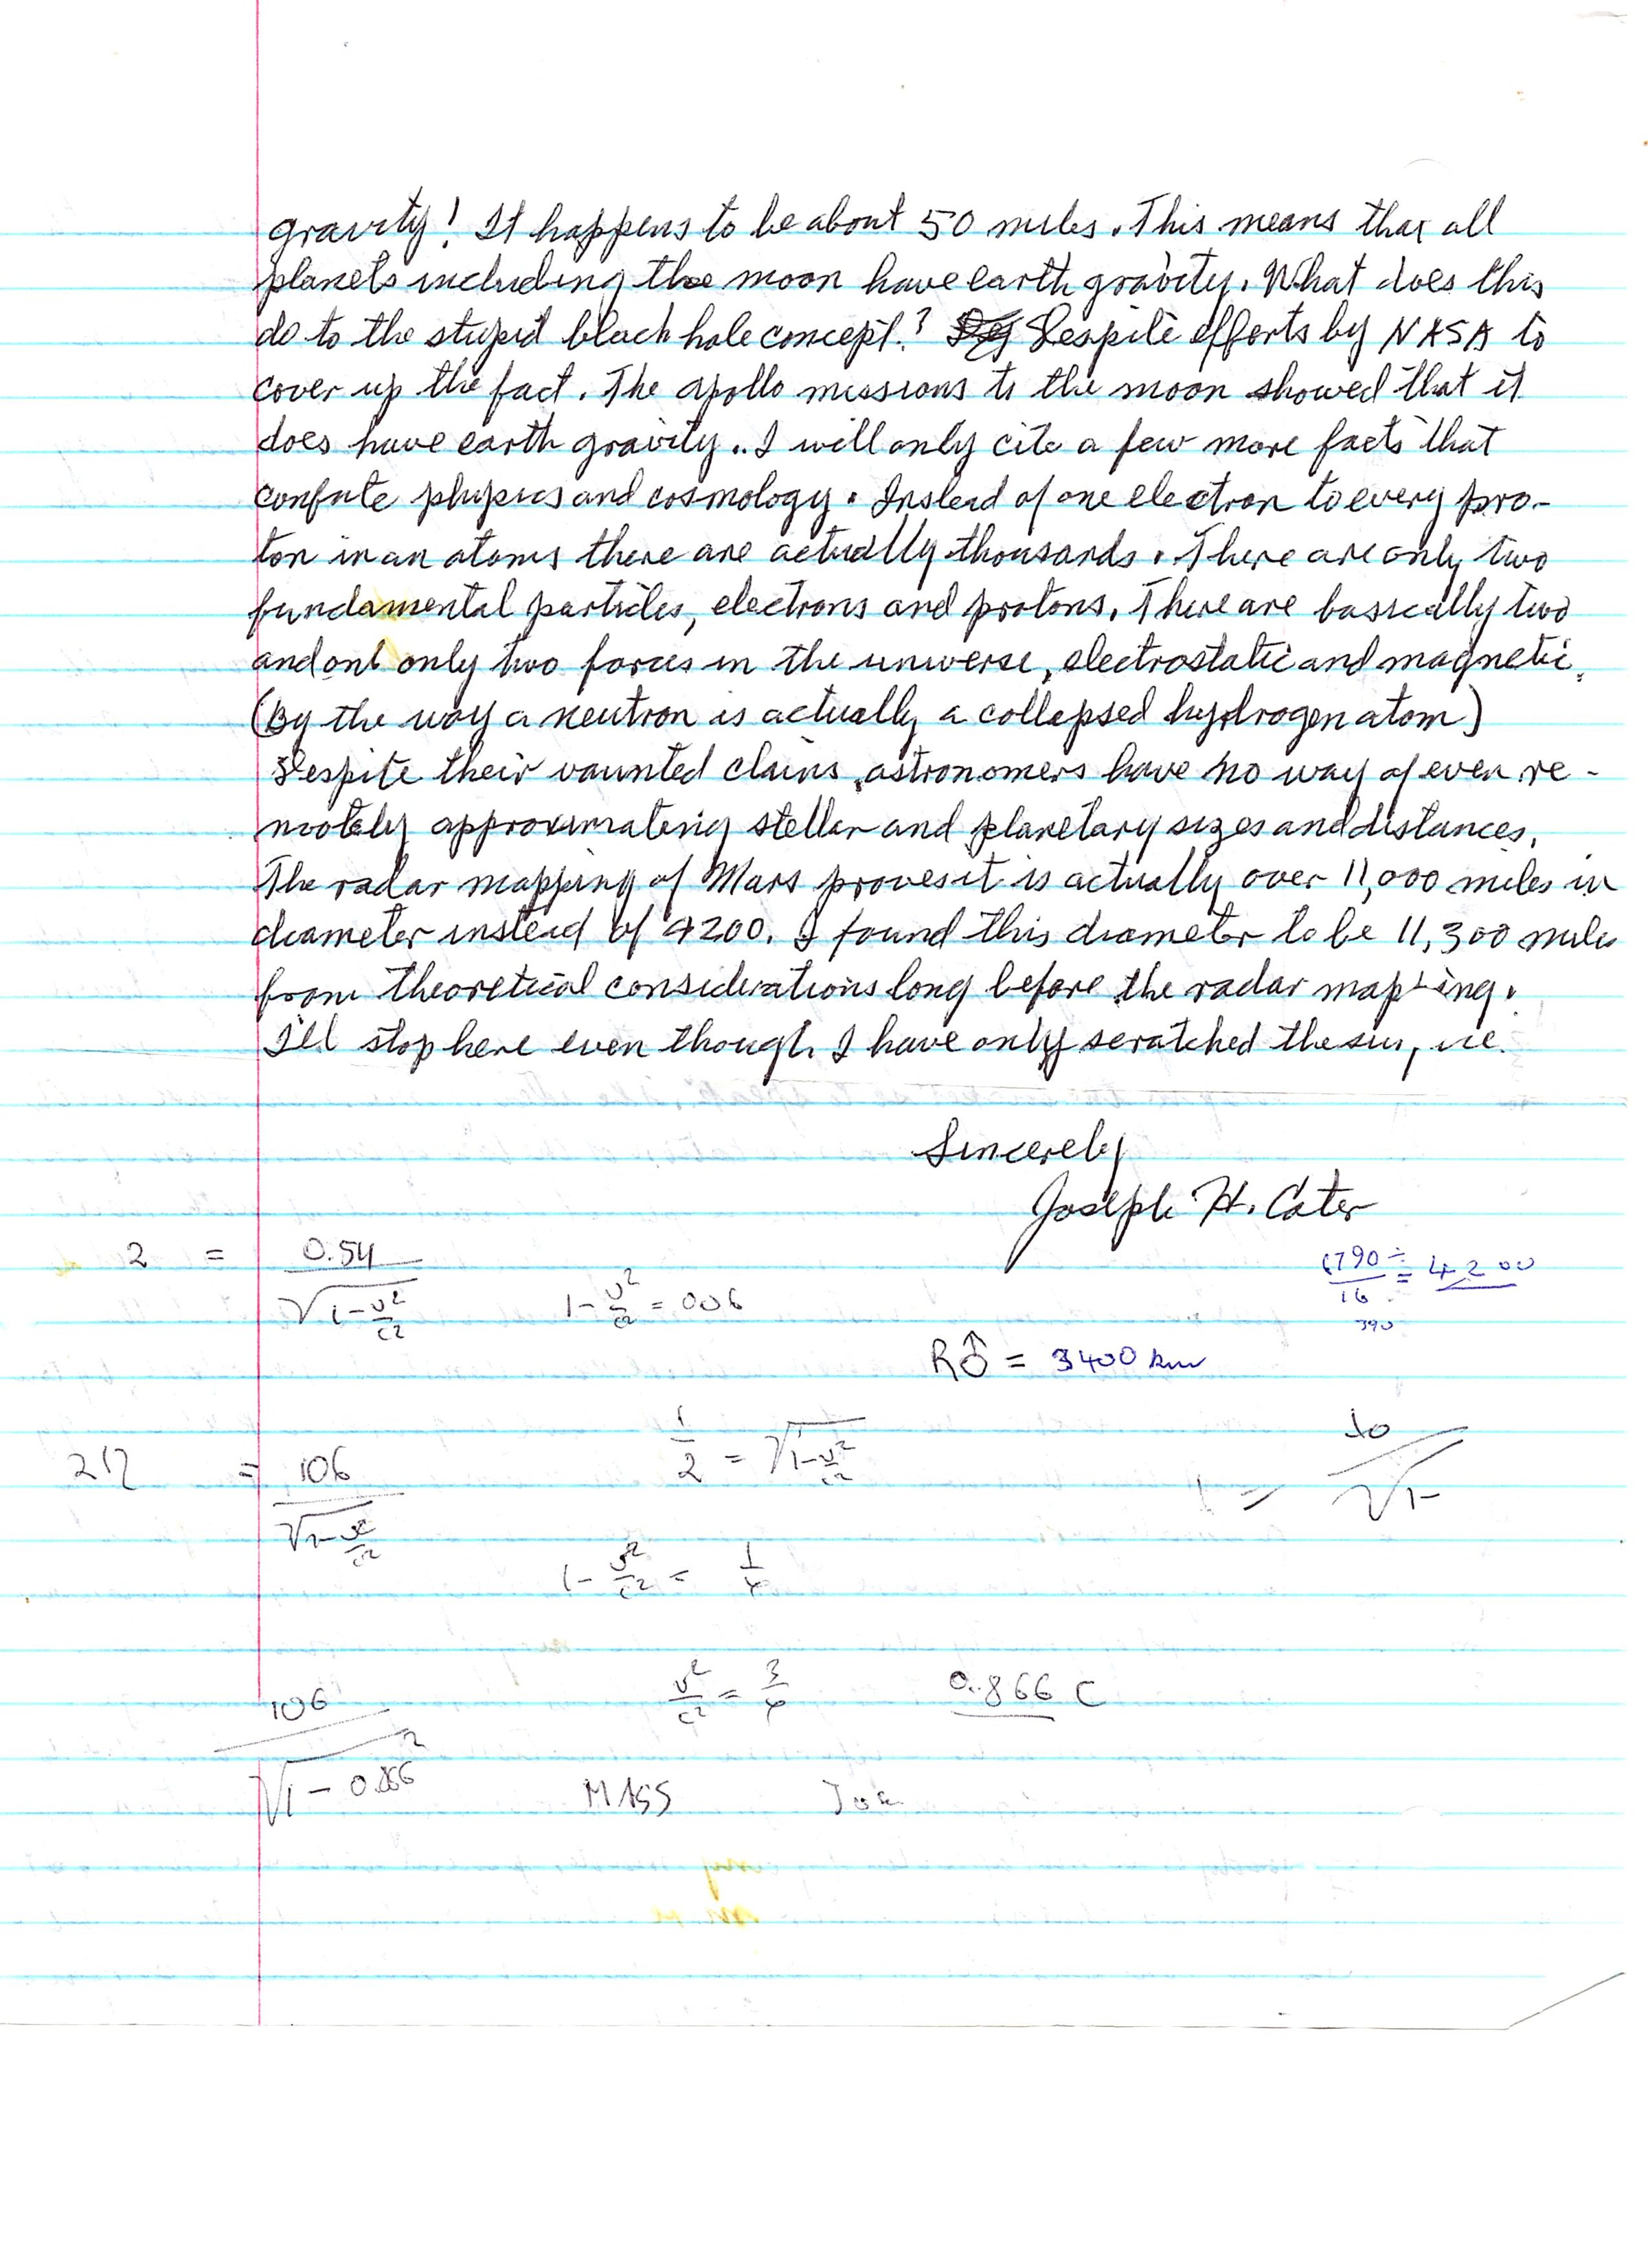 gravity! It happens to be about 50 miles. This means that all
planets including the moon have earth gravity. What does this
do to the stupid black hole concept? Despite efforts by NASA to
cover up the fact. The apollo missions to the moon showed that it
does have earth gravity.. I will only cite a few more facts that
confute physics and cosmology. Instead of one electron to every pro-
ton in an atoms there are actually thousands. There are only two
fundamental particles, electrons and protons. There are basically two
and only two forces in the universe, electrostatic and magnetic.
(By the way a neutron is actually a collapsed hydrogen atom)
Despite their vaunted claims, astronomers have no way of even re-
motely approximating stellar and planetary sizes and distances.
The radar mapping of Mars proves it is actually over 11,000 miles in
diameter instead of 4200. I found this diameter to be 11,300 miles
from theoretical considerations long before the radar mapping.
I'll stop here even though I have only scratched the surface.
Sincerely
Joseph H. Cater
2 = 0.54 / √1-v²/c²
1-v²/c² = 006
6790 / 16 = 4200
390
R♂ = 3400 km
217 = 106 / √1-v²/c²
1/2 = √1-v²/c²
1 = 10 / √1-
1-v²/c² = 1/4
v²/c² = 3/4
0.866 C
106 / √1-0.866²
MASS